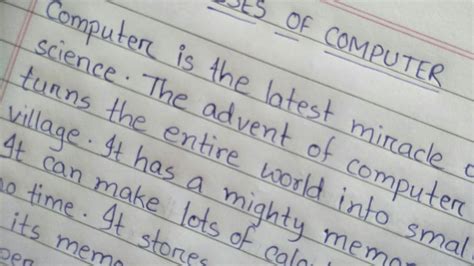 OF COMPUTER
Computer is the latest miracle
science. The advent of computer
turns the entire world into
village. It has a mighty
It can make lots of
time. It stores
its